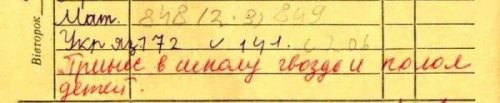 Вівторок
Мат. 848 (2.3) 849
Укр яз 172 у 141.
Принес в школу гвозди и колол
детей.